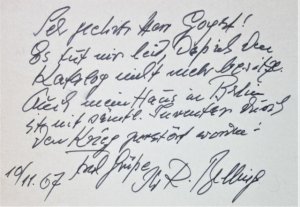 Sehr geehrter Herr Goyert!
Es tut mir leid Daß ich den
Katalog nicht mehr besitze.
Auch mein Haus in Berlin
ist mit samt Inventar durch
den Krieg zerstört worden!
Grüße Ihr R. Belling
10/11.67